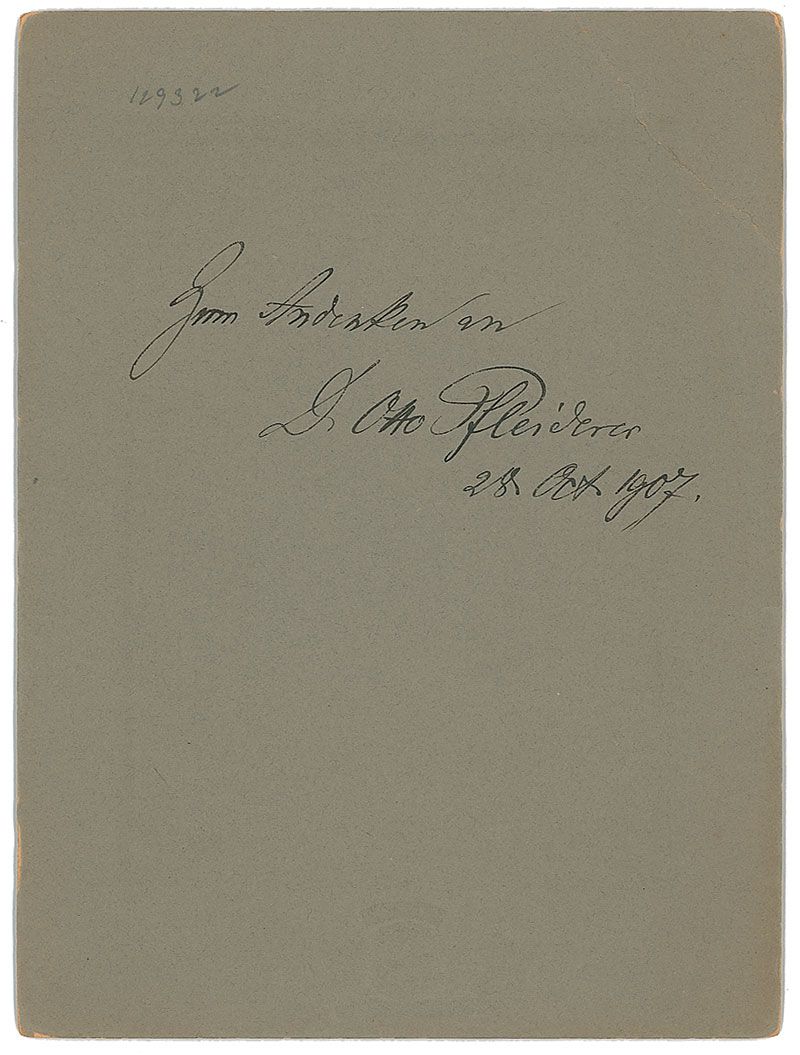 119322
Zum Andenken an
D. Otto Pfleiderer
28. Oct. 1907.